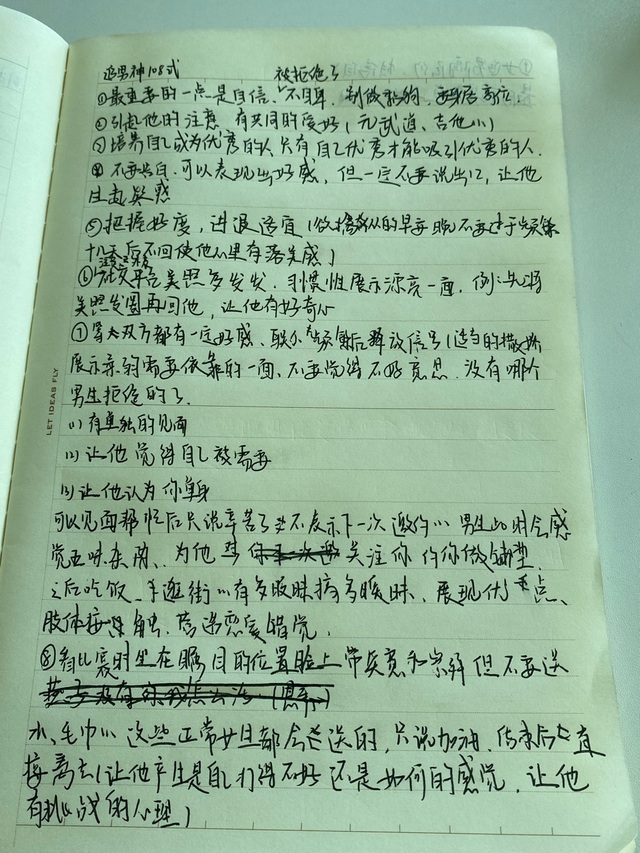 追男神108式 被拒绝了
①最重要的一点是自信、不自卑,制做
②引起他的注意,有共同的爱好(元武道、吉他
③培养自己成为优秀的人,只有自己优秀才能吸引优秀的人.
④不要告白,可以表现出好感,但一定不要说出口,让他
自我疑惑
⑤把握好度,进退适宜(做 的早安晚 不要过于
十几天后不回使他心里有落差感)
⑥社交平台美照多发发,习惯性展示漂亮一面,例:先将
美照发圈再回他,让他有好奇心
⑦等大双方都有一定好感、联系 后释放信号(适当的撒娇
展示柔弱需要依靠的一面、不要觉得不好意思,没有哪个
男生拒绝的了.
(1)有单独的见面
(2)让他觉得自己被需要
(3)让他认为你单身
可以见面帮忙后只说辛苦了并不表示下一次邀约 男生此时会感
觉五味杂陈、为他 关注你约你做铺垫.
之后吃饭、 逛街 有多暧昧搞多暧昧、展现优点、
肢体接触、营造恋爱错觉.
⑧看比赛时坐在瞩目的位置脸上带笑意和 但不要送
水、毛巾 这些正常女旦都会送的,只说加油,结束后 直
接离去(让他产生是自己打得不好还是如何的感觉,让他
有挑战的心理)
LET IDEAS FLY